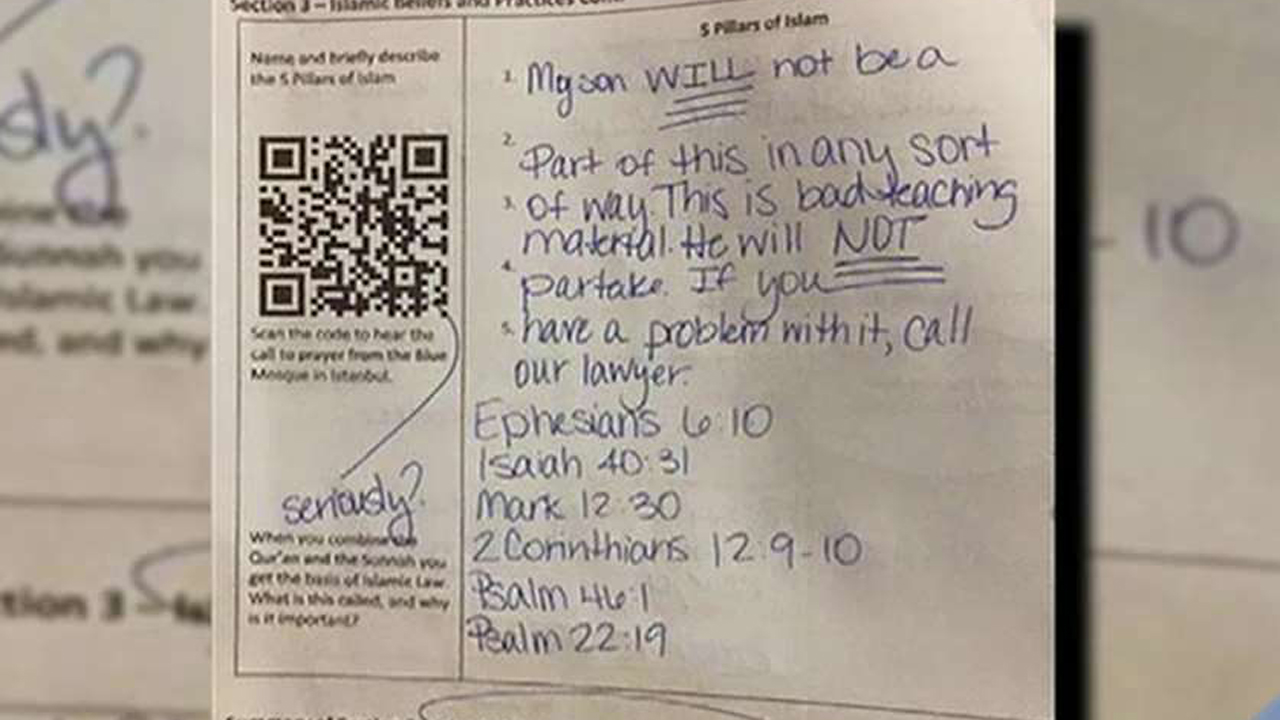 Section 3 – Islamic Beliefs and Practices
5 Pillars of Islam
Name and briefly describe
the 5 Pillars of Islam
1. My son WILL not be a
2. Part of this in any sort
3. of way. This is bad teaching
material. He will NOT
4. partake. If you
5. have a problem with it, call
our lawyer.
Ephesians 6:10
Isaiah 40:31
Mark 12:30
2 Corinthians 12:9-10
Psalm 46:1
Psalm 22:19
Scan the code to hear the
call to prayer from the Blue
Mosque in Istanbul.
seriously?
When you combine the
Qur'an and the Sunnah you
get the basis of Islamic Law.
What is this called, and why
is it important?
Sunnah you
Islamic Law.
and why
10